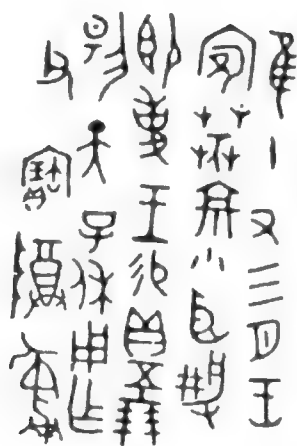 隹十又三月王
宛莽京小臣靜
即事王易貝五十朋
揚天子休用乍
父寶尊彝